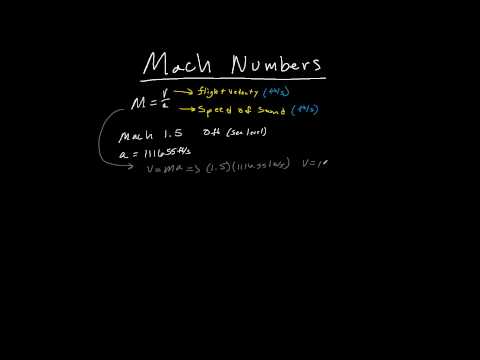 Mach Numbers
M = V/a → flight velocity (ft/s)
→ Speed of Sound (ft/s)
Mach 1.5 0ft (sea level)
a = 1116.55 ft/s
V = Ma => (1.5)(1116.55 ft/s) V = 1